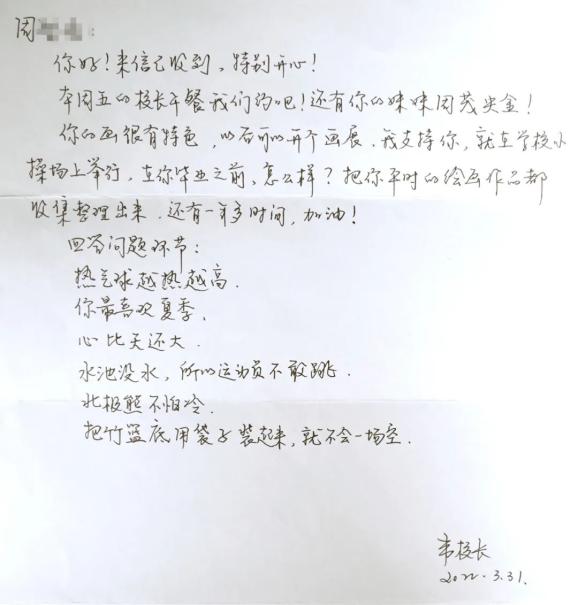 周
你好！来信已收到，特别开心！
本周五的校长午餐我们约吧！还有你的妹妹周茂央金！
你的画很有特色，以后可以开个画展，我支持你，就在学校小
操场上举行，在你毕业之前，怎么样？把你平时的绘画作品都
收集整理出来，还有一年多时间，加油！
回答问题环节：
热气球越热越高．
你最喜欢夏季．
心比天还大．
水池没水，所以运动员不敢跳．
北极熊不怕冷．
把竹篮底用袋子装起来，就不会一场空．
韦校长
2022．3.31.